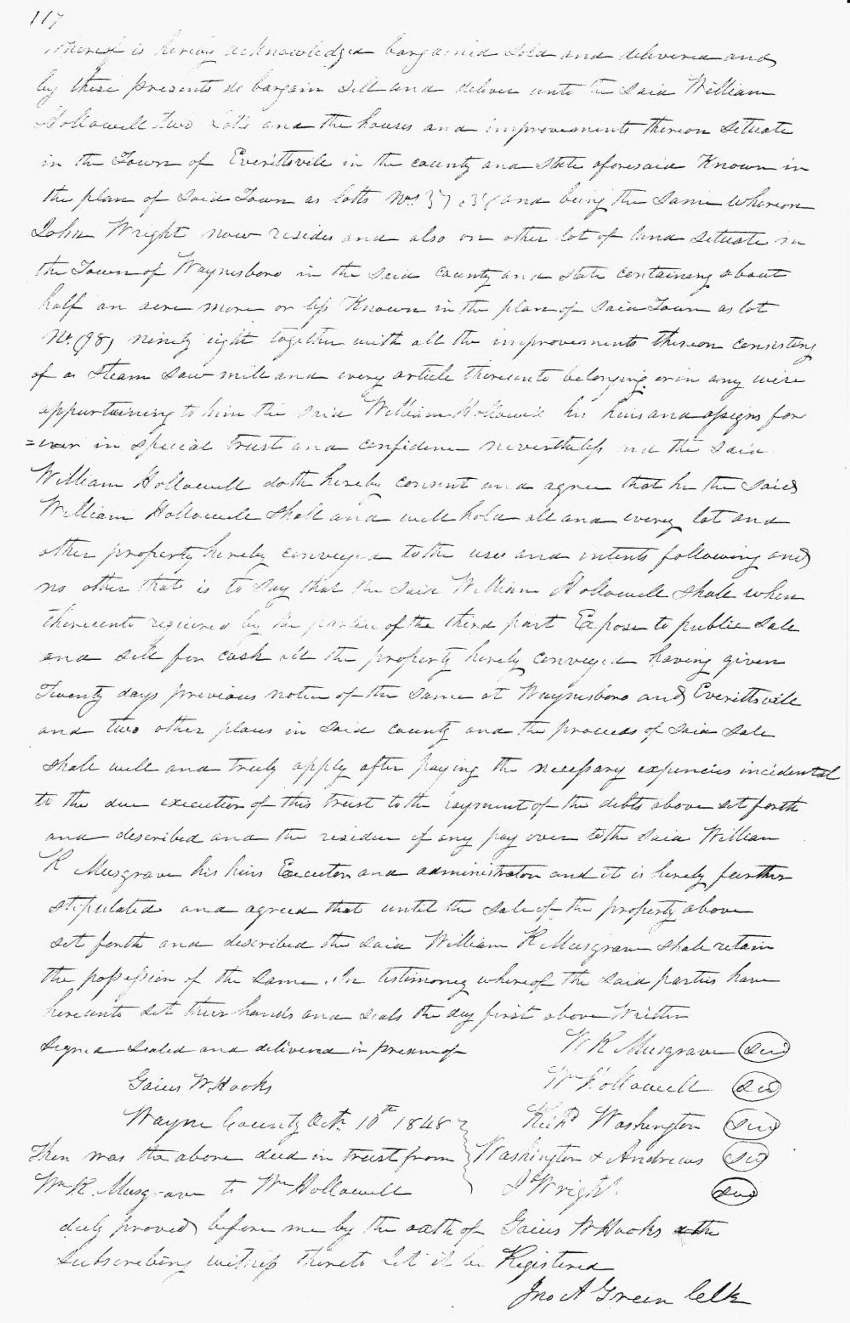 117
whereof is hereby acknowledged bargained sold and delivered and
by these presents do bargain sell and deliver unto the said William
Hollowell two lotts and the houses and improvements thereon situate
in the Town of Everittsvile in the county and state aforesaid Known in
the plan of said Town as lotts Nos 37, 38 and being the same whereon
John Wright now resides and also on other lot of land situate in
the Town of Waynesboro in the said county and state containing about
half an acre more or less Known in the plan of said Town as lot
No (98) ninety eight together with all the improvements thereon consisting
of a Steam Saw mill and every article thereunto belonging or in any wise
appurtaining to him the said William Hollowell his heirs and assigns for
=ever in special trust and confidence nevertheless and the said
William Hollowell doth hereby consent and agree that he the said
William Hollowell shall and will hold all and every lot and
other property hereby conveyed to the uses and intents following and
no other that is to say that the said William Hollowell shall when
thereunto required by the parties of the third part Expose to public sale
and sell for cash all the property hereby conveyed having given
Twenty days previous notice of the same at Waynesboro and Everittsville
and two other places in said county and the proceeds of said sale
shall well and truly apply after paying the necessary expencies incidental
to the due execution of this trust to the payment of the debts above set forth
and described and the residue if any pay over to the said William
K Musgrave his heirs Executors and administrators and it is hereby further
stipulated and agreed that until the sale of the property above
set forth and described the said William K Musgrave shall retain
the possession of the same. In testimony whereof the said parties have
hereunto set their hands and seals the day first above Written
Signed sealed and delivered in presence of W K Musgrave seal
Gaius W. Hooks Wm Hollowell seal
Wayne County Oct. 10th 1848 Richd Washington seal
Then was the above deed in trust from Washington & Andrews seal
Wm K. Musgrave to Wm Hollowell J. Wright seal
duly proved before me by the oath of Gaius W Hooks the
subscribing witness thereto let it be Registered
Jno A Green Clk